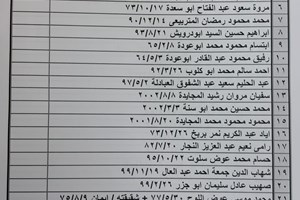 ٦ مروة سعود عبد الفتاح ابو سعدة ٧٣/١٠/١٧
٧ محمد محمود رمضان المتربيعي ٩٠/١٢/١٤
٨ ابراهيم حسين السيد ابودرويش ٩٣/٨/٢١
٩ ابتسام محمود محمد ابوعودة ٦٥/٢/٨
١٠ رفيق محمود عبد القادر ابوعودة ٦٤/٥
١١ احمد سالم محمد ابو كلوب ٩٢/٣/٢٦
١٢ عبد الحليم سعيد عبد الشفوق العبادلة ٩٧/٥/٢
١٣ سفيان مروان رشيد المجايدة ٢٠٠٢/٨/٨
١٤ محمد حسين محمد ابو سنة ٢٠٠٢/٣/٣
١٥ محمود محمد محمود المجايدة ٢٠٠١/٨/٢٠
١٦ اياد عبد الكريم نمر بريخ ٧٣/١٢/٢٦
١٧ رامي نعيم عبد العزيز النجار ٨٢/٧/٢٠
١٨ حسام محمد عوض سلوت ٩٥/١٠/٢٢
١٩ شهاب الدين جمعة احمد عبد العال ٩٩/١١/١٩
٢٠ صهيب عادل سليمان ابو جزر ٩٩/٢/٢٦
٢١ عوض ٧٧/٥/٣٠ + شقيقته / ايمان ٧٥/٨/٩